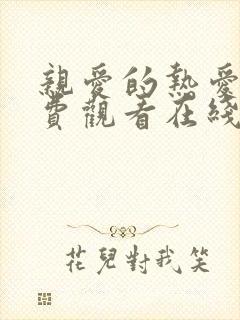 親愛的熱愛
費觀看在綫
花兒對我笑